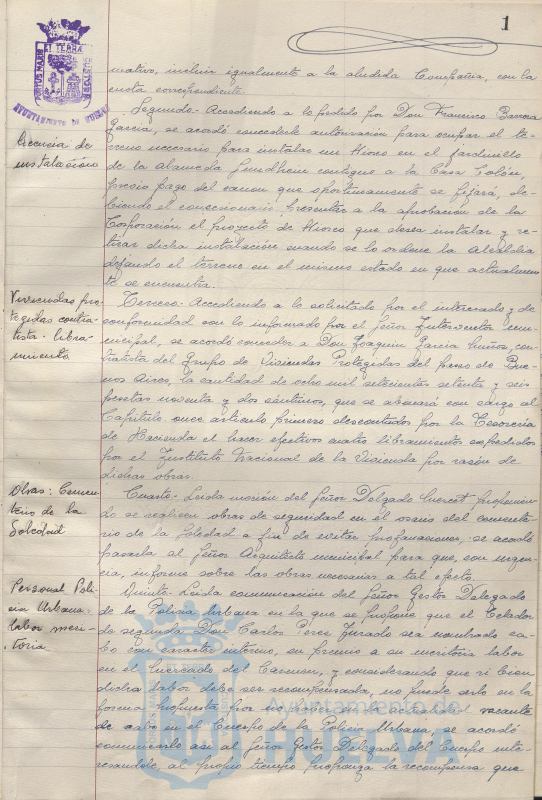 1
PORTUS MARIS ET TERRÆ CUSTODIA
AYUNTAMIENTO DE HUELVA
mativo, incluir igualmente a la aludida Compañia, con la
cuota correspondiente.
Licencia de
instalación
Segundo.- Accediendo a lo pedido por Don Francisco Barrera
Garcia, se acordó concederle autorización para ocupar el te-
rreno necesario para instalar un Kiosco en el jardinillo
de la Alameda Sundheim contiguo a la Casa Colón,
previo pago del canon que oportunamente se fijará, de-
biendo el concesionario presentar a la aprobación de la
Corporación el proyecto de Kiosco que desea instalar y re-
tirar dicha instalación cuando se lo ordene la Alcaldia
dejando el terreno en el mismo estado en que actualmen-
te se encuentra.
Viviendas pro-
tegidas contra-
tista. libra-
miento
Tercero.- Accediendo a lo solicitado por el interesado y de
conformidad con lo informado por el Señor Interventor mu-
nicipal, se acordó conceder a Don Joaquin Garcia Muñoz, con-
tratista del Grupo de Viviendas Protegidas del paseo de Bue-
nos Aires, la cantidad de ocho mil setecientas setenta y seis
pesetas noventa y dos céntimos, que se abonará con cargo al
Capitulo once articulo primero descontados por la Tesoreria
de Hacienda al hacer efectivos cuatro libramientos expedidos
por el Instituto Nacional de la Vivienda por razón de
dichas obras.
Obras: Cemen-
terio de la
Soledad
Cuarto.- Leida moción del Señor Delgado proponien-
do se realicen obras de seguridad en el osario del cemente-
rio de la Soledad a fin de evitar profanaciones, se acordó
pasarla al Señor Arquitecto municipal para que, con urgen-
cia, informe sobre las obras necesarias a tal efecto.
Personal Poli-
cia Urbana.
labor meri-
toria
Quinto.- Leida comunicación del Señor Gestor Delegado
de la Policia Urbana en la que se propone que el Celador
de segunda Don Carlos Perez Jurado sea nombrado ca-
bo con caracter interino, en premio a su meritoria labor
en el Mercado del Carmen, y considerando que si bien
dicha labor debe ser recompensada, no puede serlo en la
forma propuesta por no existir en la actualidad vacante
de cabo en el Cuerpo de la Policia Urbana, se acordó
comunicarlo asi al Señor Gestor Delegado del Cuerpo inte-
resandole, al propio tiempo proponga la recompensa que
Ayuntamiento de
HUELVA